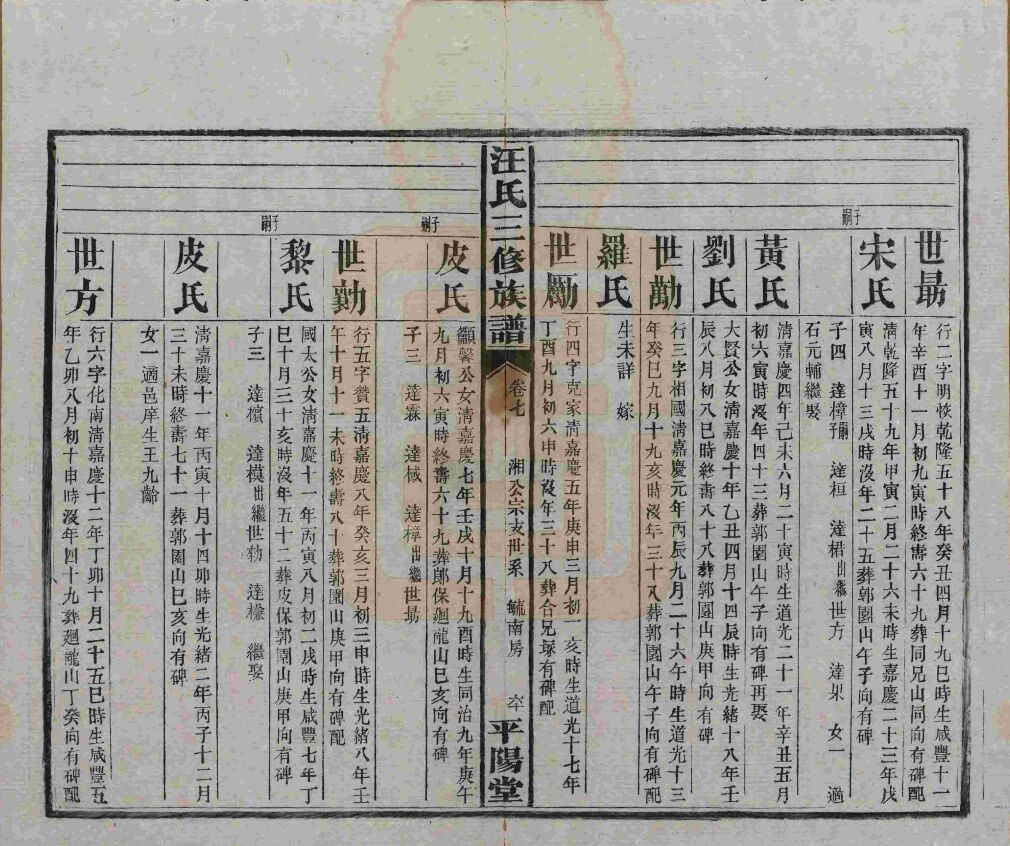 世勗
行二字明恢乾隆五十八年癸丑四月十九巳時生咸豐十一
年辛酉十一月初九寅時終壽六十九葬同兄山同向有碑配
宋氏
清乾隆五十九年甲寅二月二十六未時生嘉慶二十三年戊
寅八月十三戌時沒年二十五葬郭園山午子向有碑
子嗣
子四 達樟嗣子 達桓 達楷出繼世方 達杲 女一 適
石元輔繼娶
黃氏
清嘉慶四年己未六月二十寅時生道光二十一年辛丑五月
初六寅時沒年四十三葬郭園山午子向有碑再娶
劉氏
大賢公女清嘉慶十年乙丑四月十四辰時生光緒十八年壬
辰八月初八巳時終壽八十八葬郭園山庚甲向有碑
世勱
行三字相國清嘉慶元年丙辰九月二十六午時生道光十三
年癸巳九月十九亥時沒年三十八葬郭園山午子向有碑配
羅氏
生未詳 嫁
世勵
行四字克家清嘉慶五年庚申三月初一亥時生道光十七年
丁酉九月初六申時沒年三十八葬合兄塚有碑配
汪氏三修族譜
卷七 湘公宗支世系 毓南房 平陽堂
皮氏
籲馨公女清嘉慶七年壬戌十月十九酉時生同治九年庚午
九月初六寅時終壽六十九葬郎保廻龍山巳亥向有碑
子嗣
子三 達霖 達棫 達樟出繼世勗
世勷
行五字贊五清嘉慶八年癸亥三月初三申時生光緒八年壬
午十月十一未時終壽八十葬郭園山庚甲向有碑配
黎氏
國太公女清嘉慶十一年丙寅八月初二戌時生咸豐七年丁
巳十月三十亥時沒年五十二葬皮保郭園山庚甲向有碑
子嗣
子三 達檳 達模出繼世勃 達橡 繼娶
皮氏
清嘉慶十一年丙寅十月十四卯時生光緒二年丙子十二月
三十未時終壽七十一葬郭園山巳亥向有碑
女一適邑庠生王九齡
世方
行六字化南清嘉慶十二年丁卯十月二十五巳時生咸豐五
年乙卯八月初十申時沒年四十九葬廻龍山丁癸向有碑配